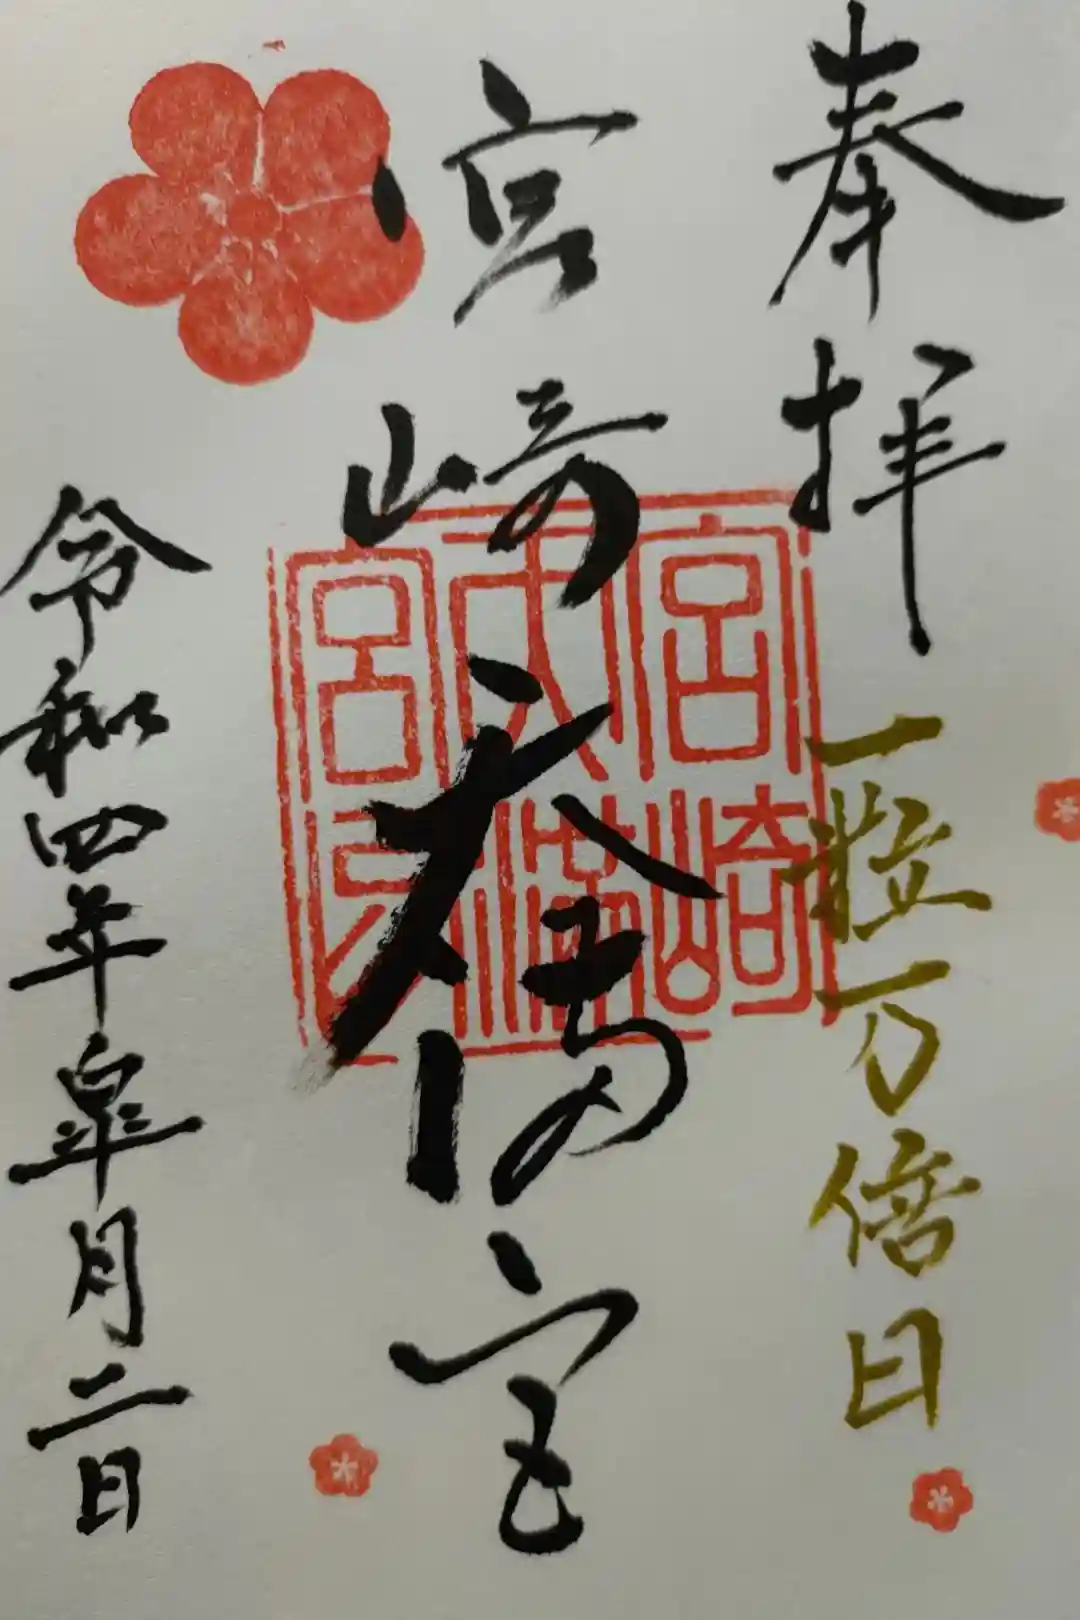 奉拝 一粒万倍日
宮崎天満宮
宮崎
天満
宮印
令和四年皐月二日